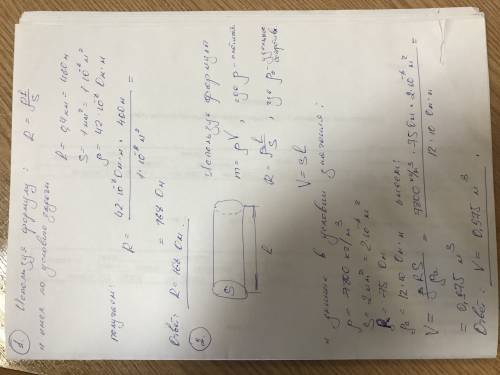 1. Используя формулу: R = ρl/S
и имея по условию задачи
l = 0,4 км = 400 м
S = 1 мм² = 1·10⁻⁶ м²
ρ = 42·10⁻⁸ Ом·м
получаем:
R = 42·10⁻⁸ Ом·м · 400 м / 1·10⁻⁶ м² =
= 168 Ом.
Ответ: R = 168 Ом
2. Используя формулы
m = ρV, где ρ - плотность
R = ρl/S, где ρ₂ - удельное
V = Sl
S
l
и данные в условии значения:
ρ = 7700 кг/м³
S = 2 мм² = 2·10⁻⁶ м²
R = 75 Ом
ρ₂ = 12·10 Ом·м
имеем:
V = ρRS/ρ₂ = 7700 кг/м³ · 75 Ом · 2·10⁻⁶ м² / 12·10 Ом·м =
= 0,975 м³
Ответ: V = 0,975 м³.